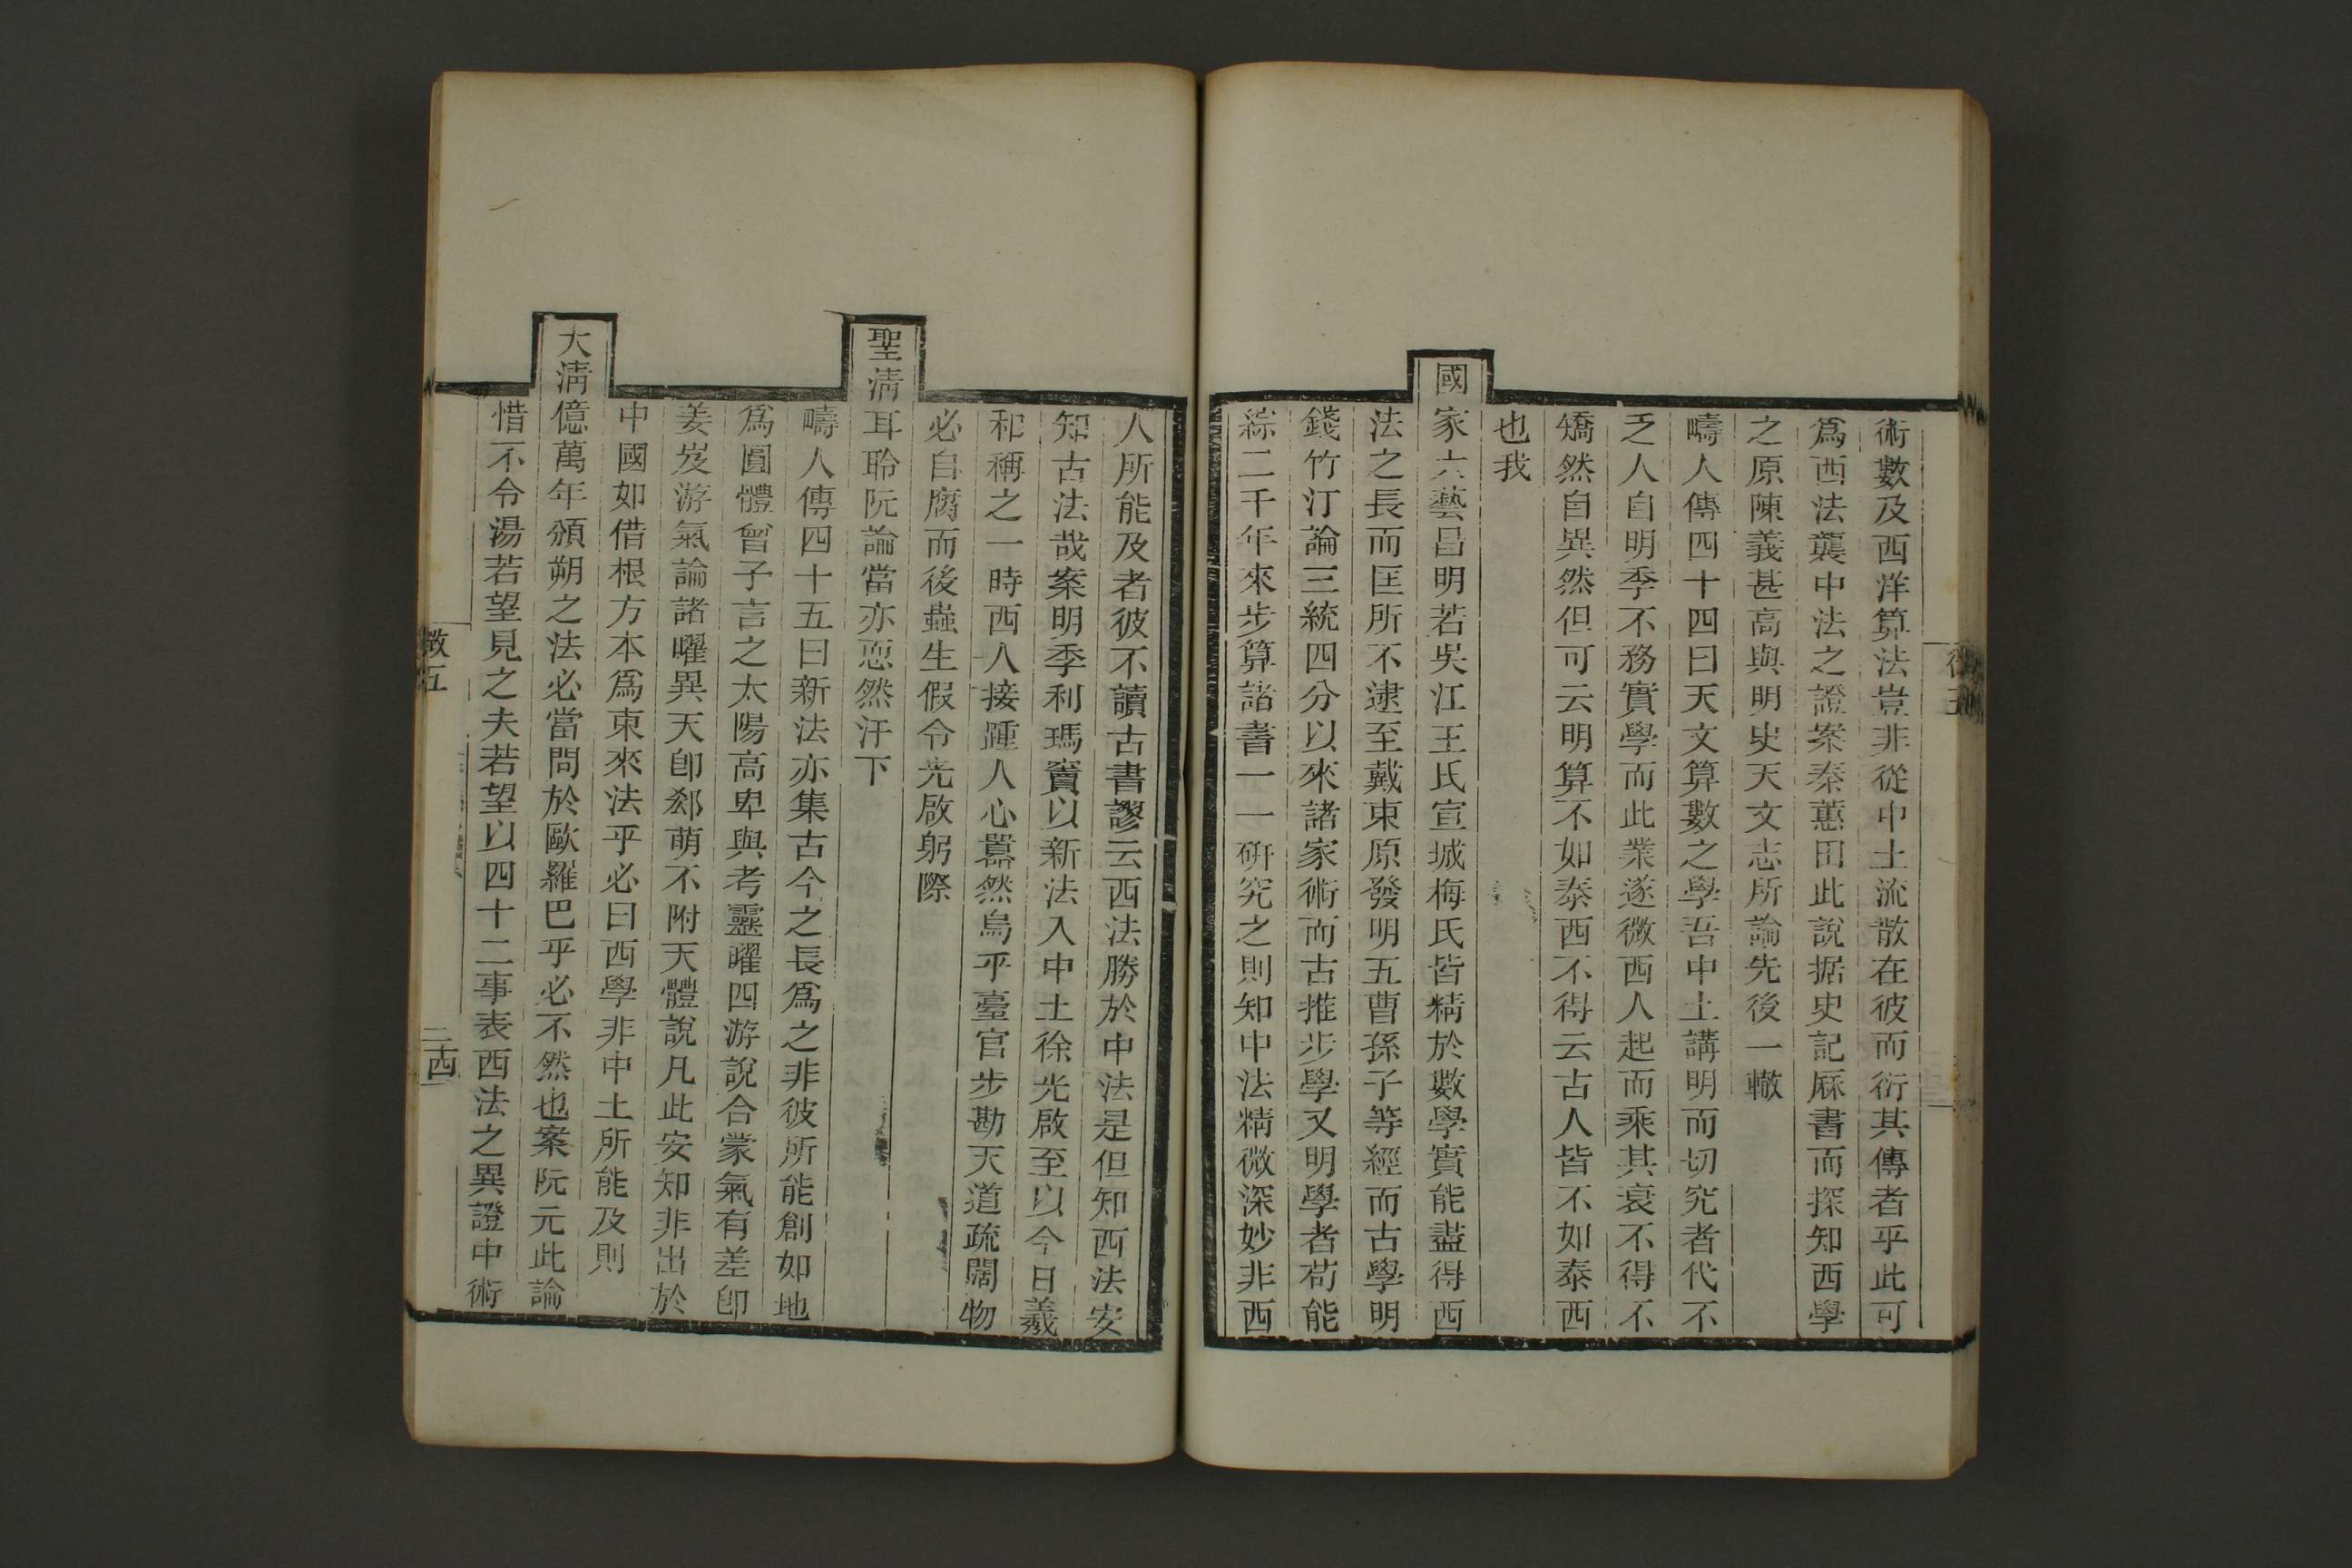 術數及西洋算法豈非從中土流散在彼而衍其傳者乎此可
爲西法襲中法之證案秦蕙田此說据史記厤書而探知西學
之原陳義甚高與明史天文志所論先後一轍
疇人傳四十四曰天文算數之學吾中土講明而切究者代不
乏人自明季不務實學而此業遂微西人起而乘其衰不得不
矯然自異然但可云明算不如泰西不得云古人皆不如泰西
也我
國家六藝昌明若吳江王氏宣城梅氏皆精於數學實能盡得西
法之長而匡所不逮至戴東原發明五曹孫子等經而古學明
錢竹汀論三統四分以來諸家術而古推步學又明學者苟能
綜二千年來步算諸書一一硏究之則知中法精微深妙非西
人所能及者彼不讀古書謬云西法勝於中法是但知西法安
知古法哉案明季利瑪竇以新法入中土徐光啟至以今日羲
和稱之一時西人接踵人心囂然烏乎臺官步勘天道疏闊物
必自腐而後蟲生假令光啟躬際
聖淸耳聆阮論當亦恧然汗下
疇人傳四十五曰新法亦集古今之長爲之非彼所能創如地
爲圓體曾子言之太陽高卑與考靈曜四游說合蒙氣有差卽
姜岌游氣論諸曜異天卽郄萌不附天體說凡此安知非出於
中國如借根方本爲東來法乎必曰西學非中土所能及則
大淸億萬年頒朔之法必當問於歐羅巴乎必不然也案阮元此論
惜不令湯若望見之夫若望以四十二事表西法之異證中術
徵五